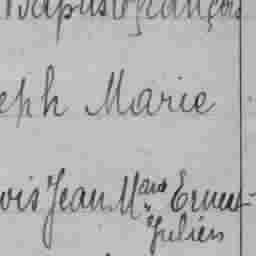 Baptiste François
eph Marie
ouis Jean M^ard Ernest
Julien